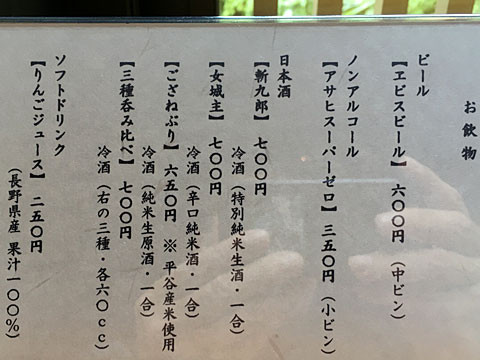 お飲物
ビール
【ヱビスビール】 六〇〇円 （中ビン）
ノンアルコール
【アサヒスーパーゼロ】 三五〇円 （小ビン）
日本酒
【斬九郎】 七〇〇円
冷酒（特別純米生酒・一合）
【女城主】 七〇〇円
冷酒（辛口純米酒・一合）
【ござねぶり】 六五〇円 ※平谷産米使用
冷酒（純米生原酒・一合）
【三種呑み比べ】 七〇〇円
冷酒（右の三種・各六〇cc）
ソフトドリンク
【りんごジュース】 二五〇円
（長野県産 果汁一〇〇%）